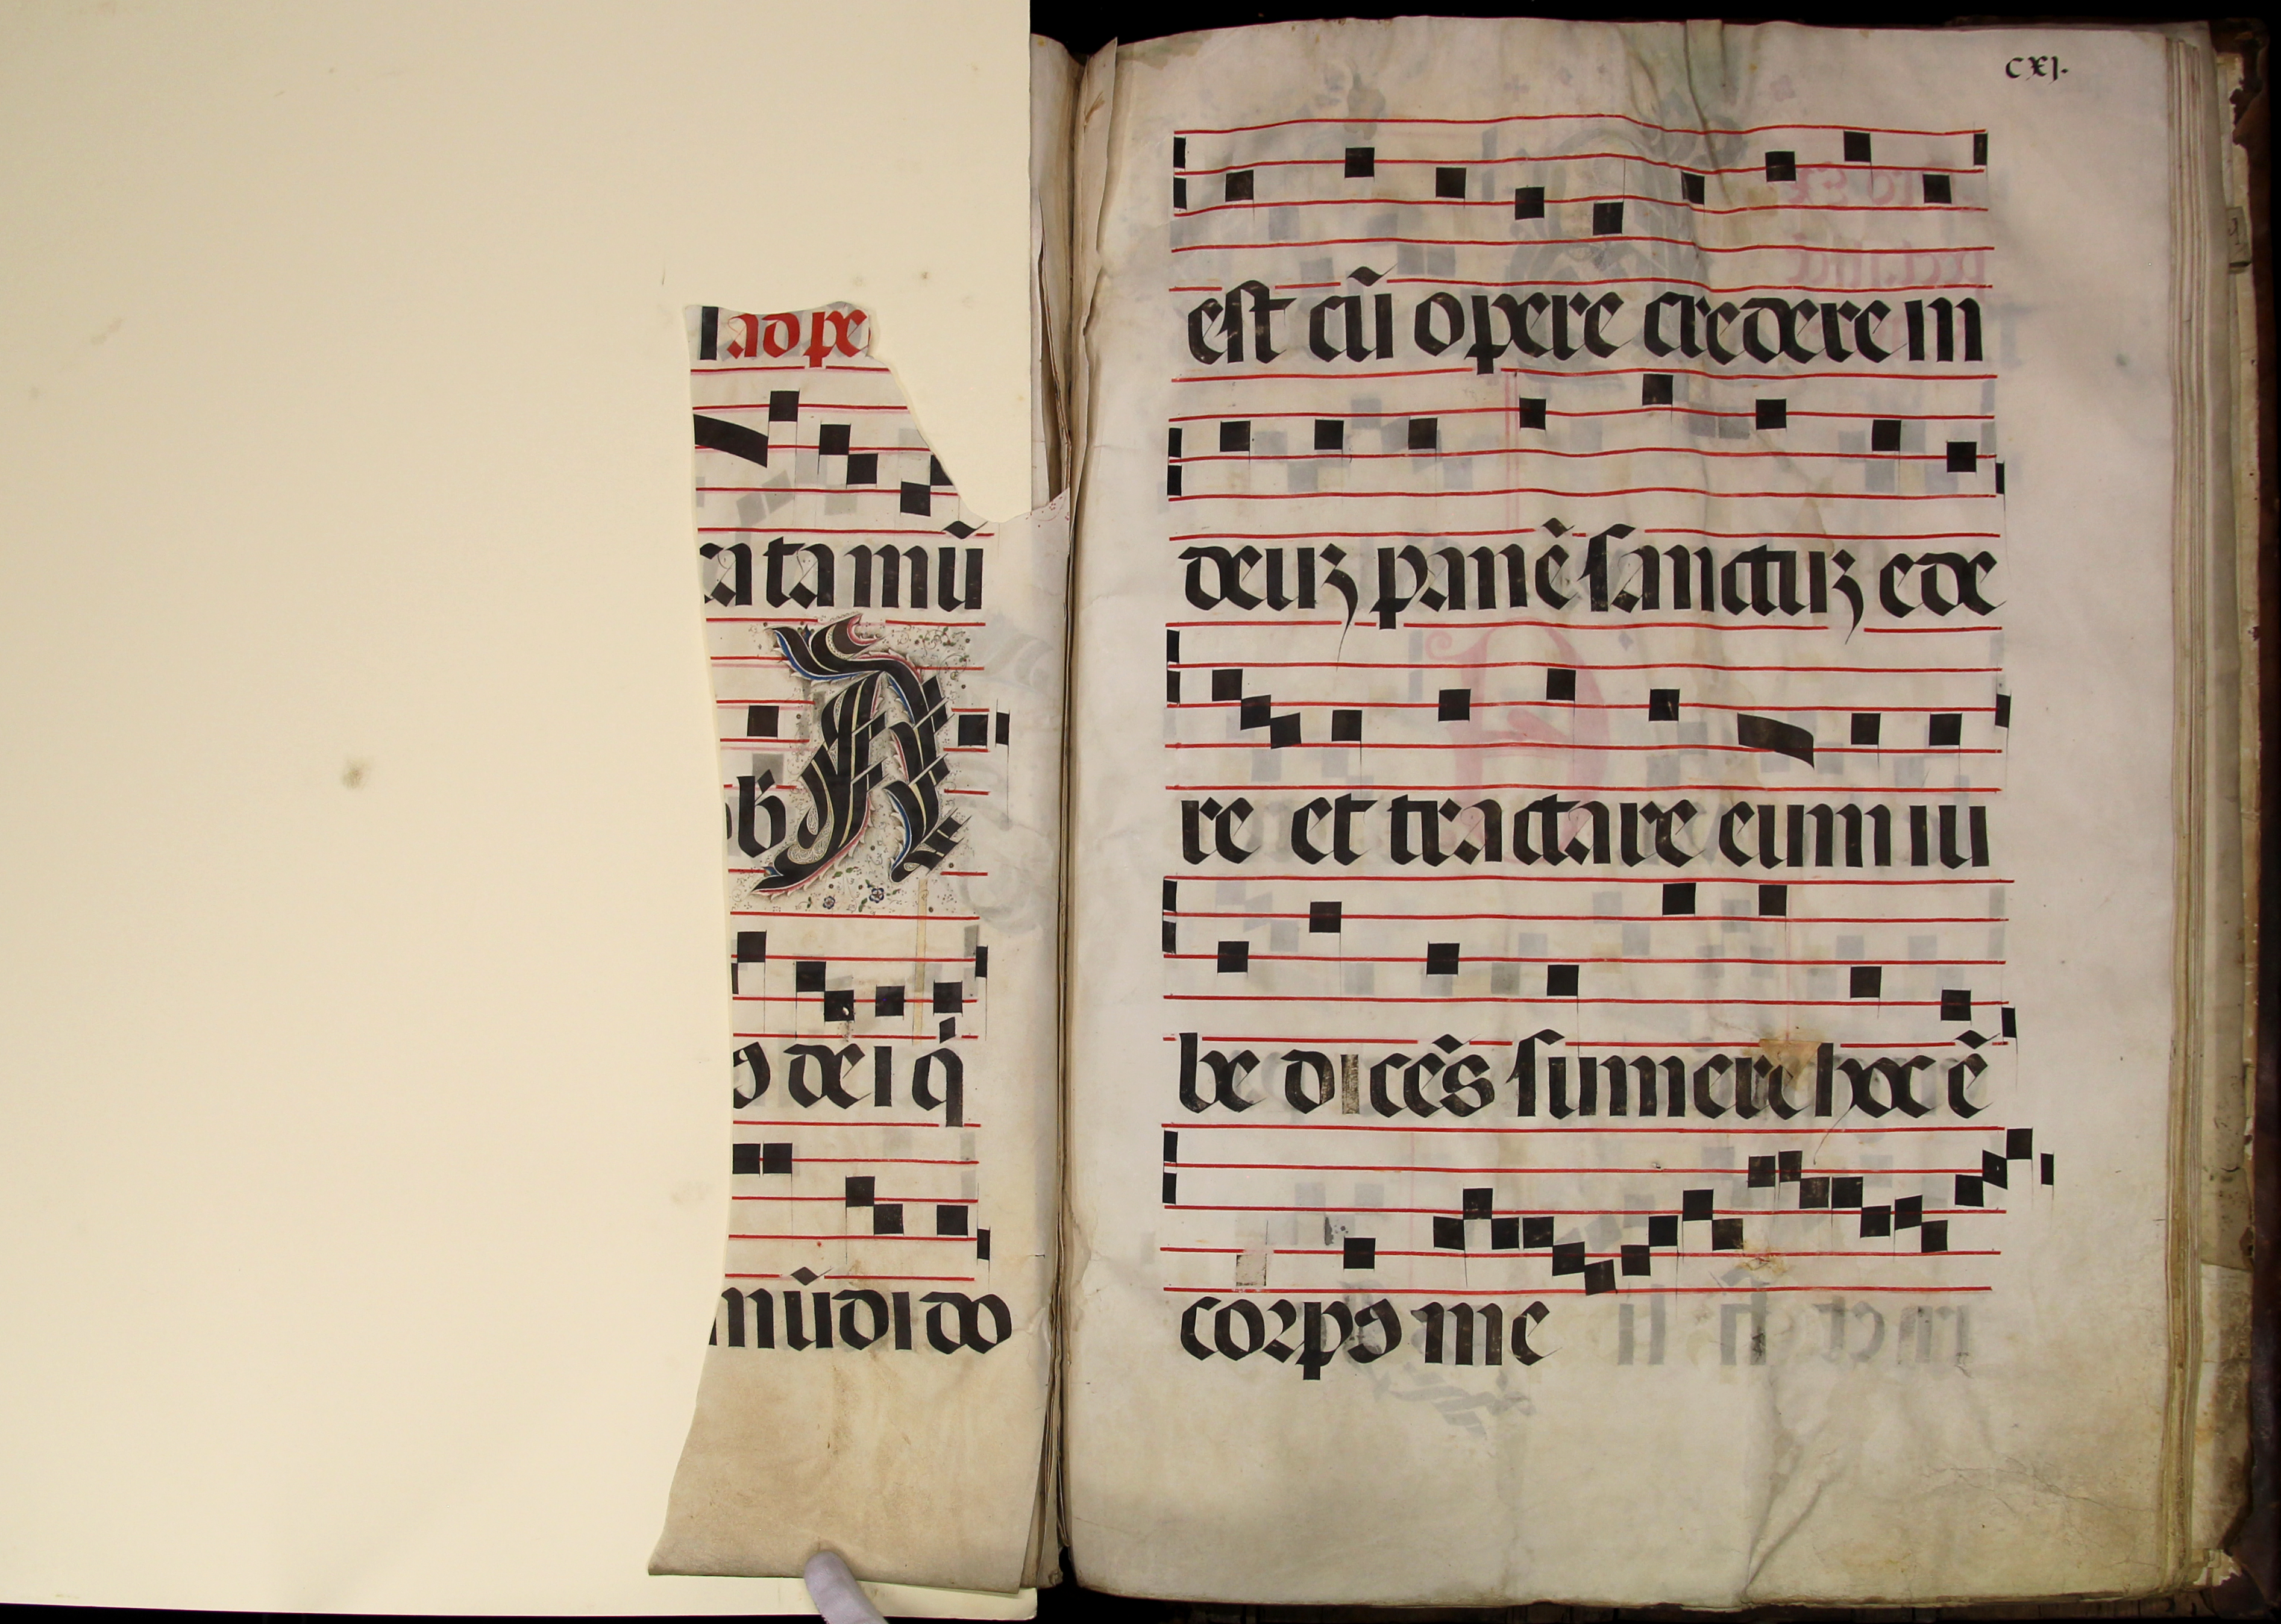 ad pe
cata mũ
A
dei q̃
mũdi do
cxj.
est cũ opere credere in
deuʒ panẽ sanctuʒ ede
re et tractare eum iu
be dicẽs sumere hoc ẽ
corpꝯ me